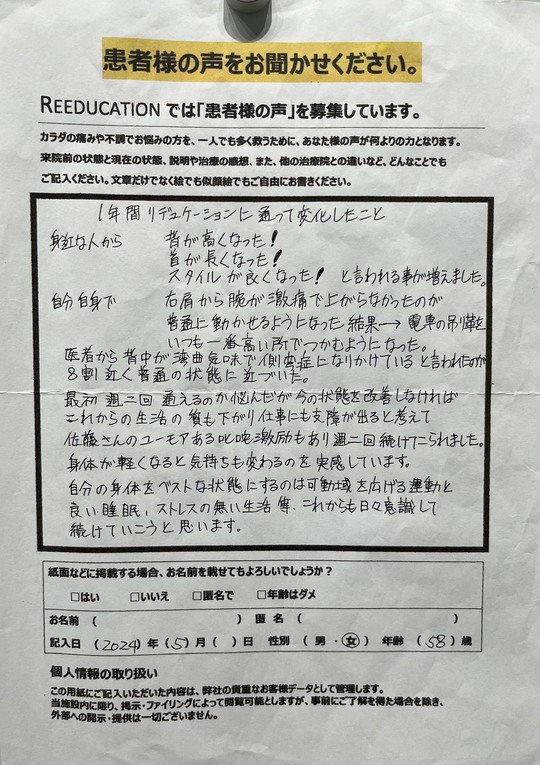 患者様の声をお聞かせください。
REEDUCATION では「患者様の声」を募集しています。
カラダの痛みや不調でお悩みの方を、一人でも多く救うために、あなた様の声が何よりの力となります。
来院前の状態と現在の状態、説明や治療の感想、また、他の治療院との違いなど、どんなことでも
ご記入ください。文章だけでなく絵でも似顔絵でもご自由にお書きください。
1年間リデュケーションに通って変化したこと
身近な人から 背が高くなった!
首が長くなった!
スタイルが良くなった! と言われる事が増えました。
自分自身で 右肩から腕が激痛で上がらなかったのが
普通に動かせるようになった 結果→ 電車の吊り革を
いつも一番高い所でつかむようになった。
医者から背中が湾曲気味で側弯症になりかけていると言われたのが
8割近く普通の状態に近づいた。
最初 週二回 通えるのか悩んだが今の状態を改善しなければ
これからの生活の質も下がり仕事にも支障が出ると考えて
佐藤さんのユーモアある叱咤激励もあり週二回続けてこられました。
身体が軽くなると気持ちも変わるのを実感しています。
自分の身体をベストな状態にするのは可動域を広げる運動と
良い睡眠、ストレスの無い生活等、これからも日々意識して
続けていこうと思います。
紙面などに掲載する場合、お名前を載せてもよろしいでしょうか?
□はい □いいえ □匿名で □年齢はダメ
お名前 ( ) 匿名 ( )
記入日 (2024)年(5)月( )日 性別 (男・女) 年齢 (58)歳
個人情報の取り扱い
この用紙にご記入いただいた内容は、弊社の貴重なお客様データとして管理します。
当施設内に限り、掲示・ファイリングによって閲覧可能としますが、事前にご了解を得た場合を除き、
外部への開示・提供は一切ございません。